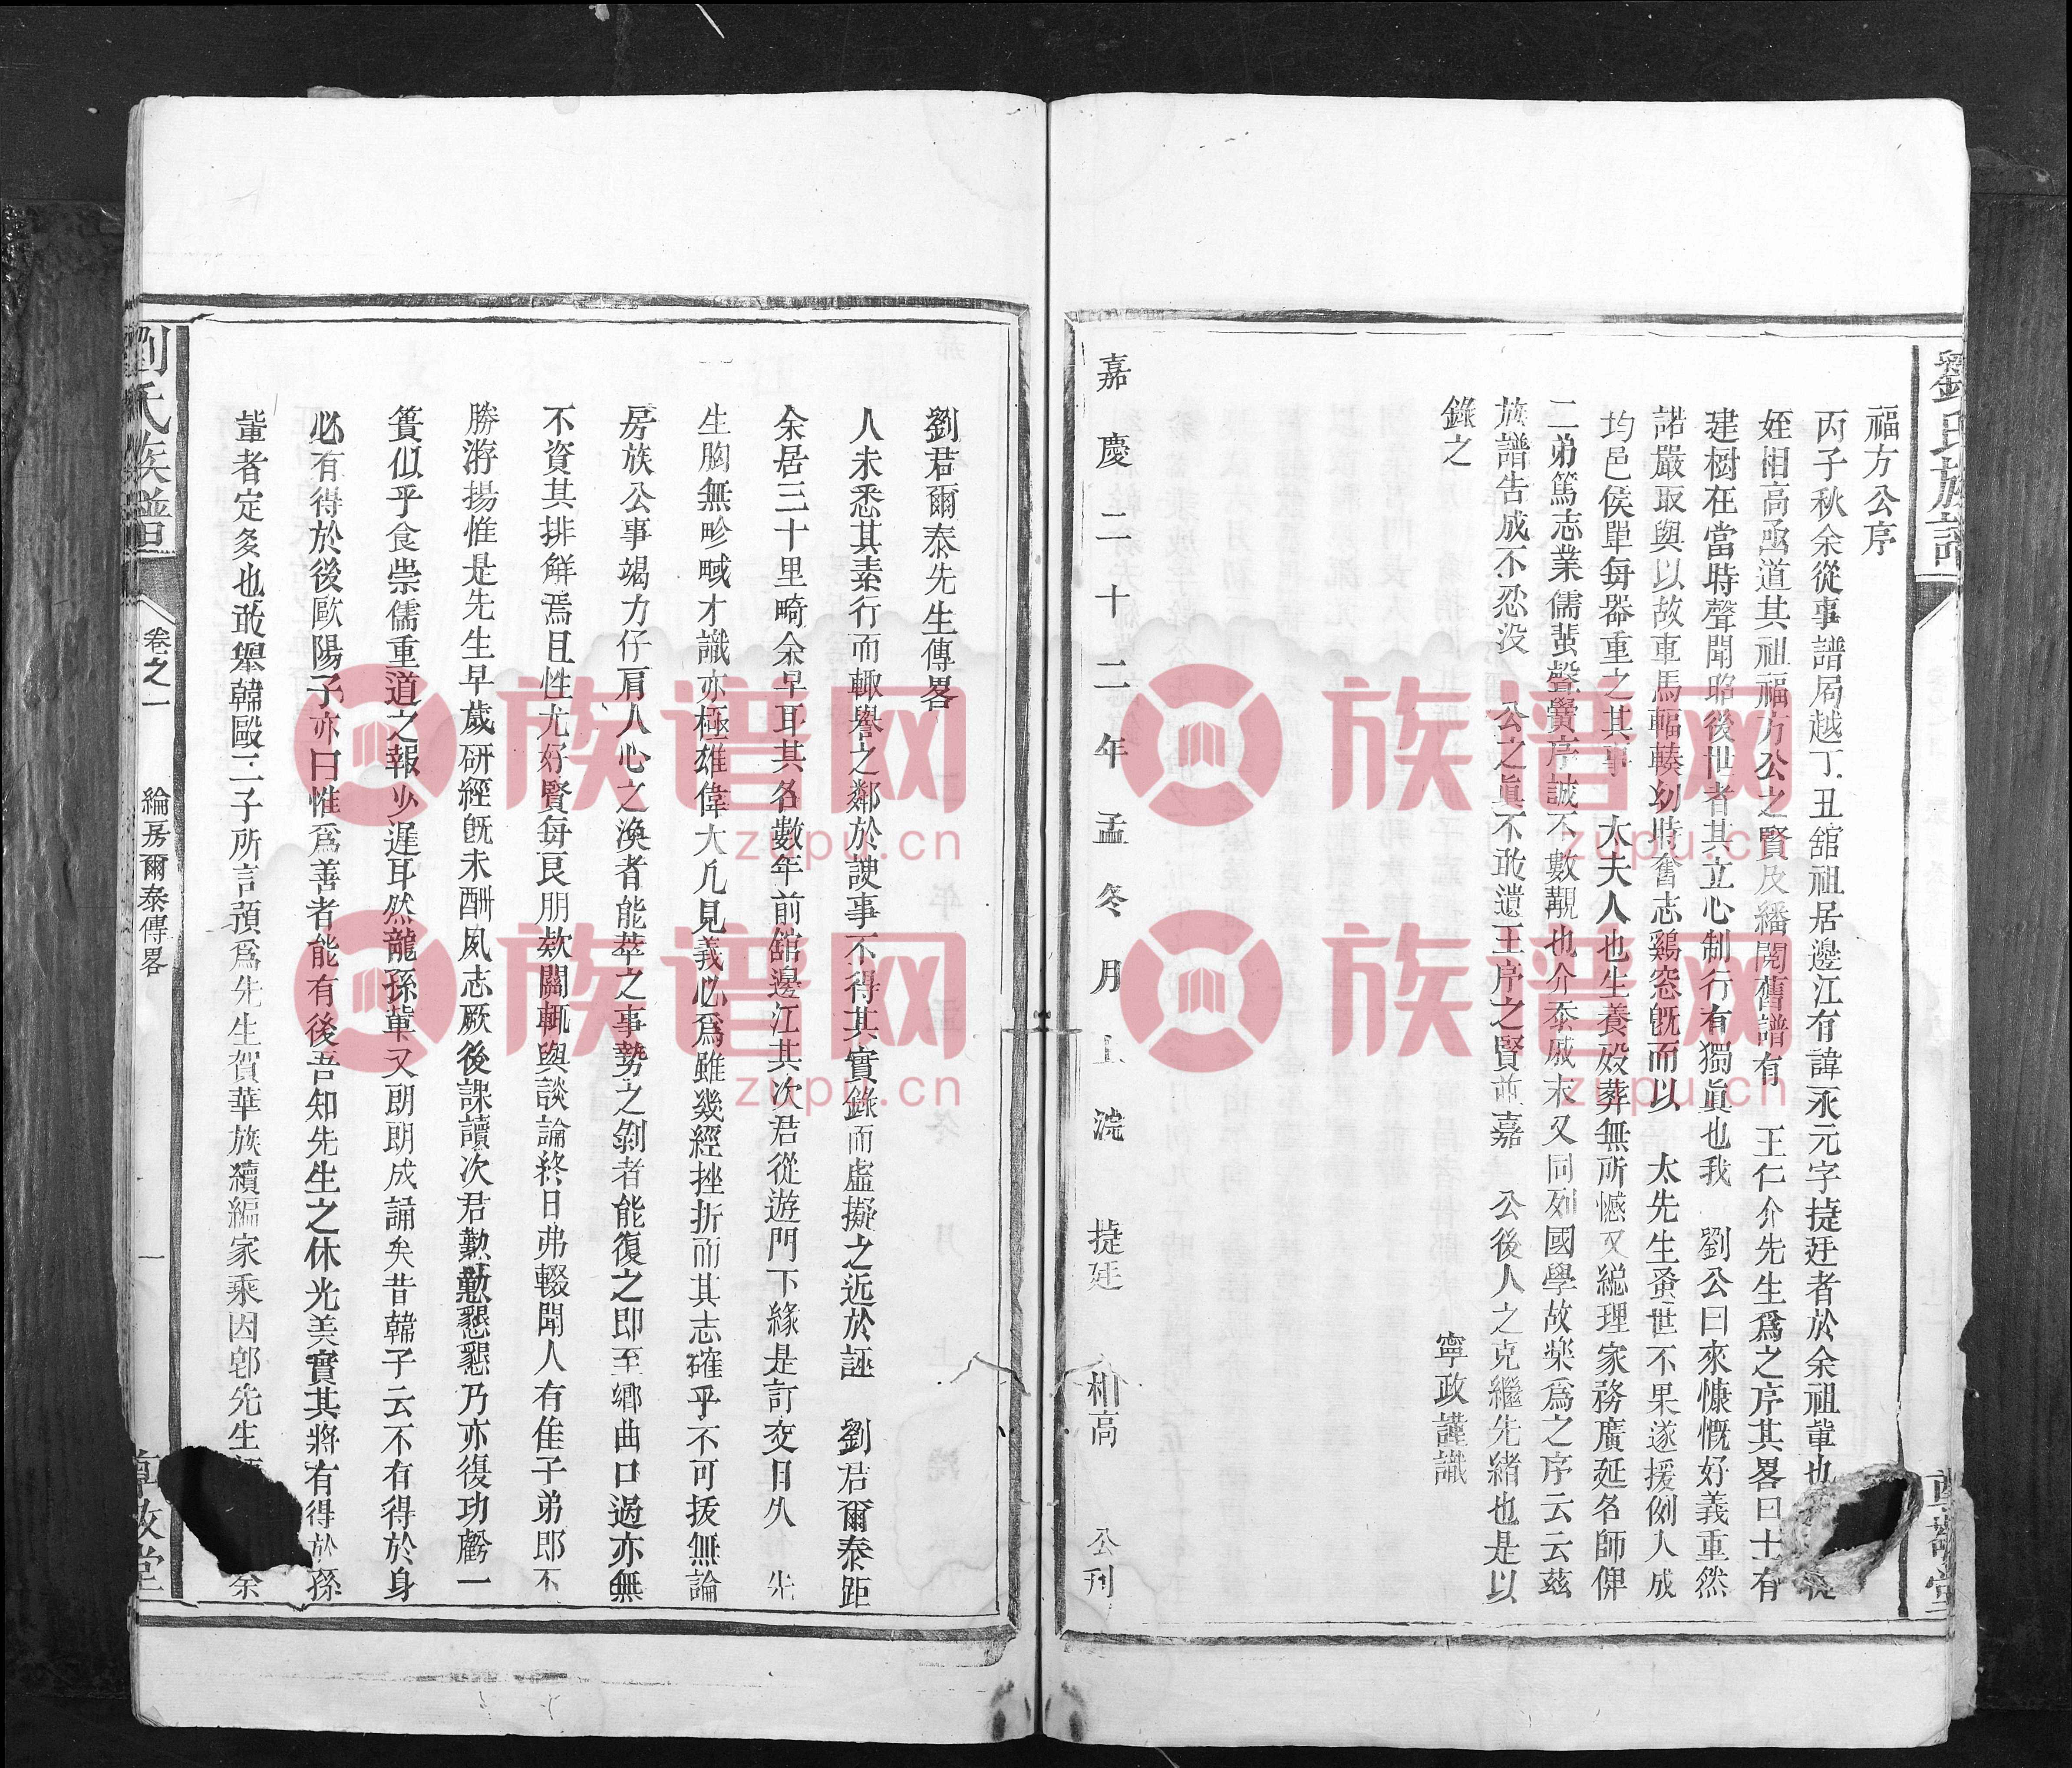 劉氏族譜
福方公序
丙子秋余從事譜局越丁丑舘祖居邊江有諱永元字㨗廷者於余祖輩也
姪相高亟道其祖福方公之賢及繙閱舊譜有 王仁介先生爲之序其畧曰士有
建樹在當時聲聞昭後世者其立心制行有獨眞也我 劉公曰來慷慨好義重然
諾嚴取與以故車馬輻輳幼時奮志鷄窓旣而以 太先生蚤世不果遂援例人成
均邑侯單每器重之其事 太夫人也生養殁葬無所憾又綂理家務廣延名師俾
二弟篤志業儒蜚聲黌序誠不數覯也介忝戚末又同列國學故樂爲之序云云茲
族譜告成不忍没 公之眞不敢遺王序之賢並嘉 公後人之克繼先緒也是以
錄之
寧政謹識
嘉慶二十二年孟冬月上浣 㨗廷 相高 公刋
劉君爾泰先生傳畧
人未悉其素行而輙譽之鄰於諛事不得其實錄而虛擬之近於誣 劉君爾泰距
余居三十里畸余早耳其名數年前舘邊江其次君從遊門下緣是訂交日久 先
生胸無畛域才識亦極雄偉大凡見義必爲雖幾經挫折而其志確乎不可拔無論
房族公事竭力仔肩人心之渙者能萃之事勢之剝者能復之即至鄉曲口過亦無
不資其排解焉且性尤好賢每艮朋欵關輒與談論終日弗輟聞人有佳子弟即不
勝游揚惟是先生早歲研經旣未酬夙志厥後課讀次君懃懃懇懇乃亦復功虧一
簣似乎食崇儒重道之報少遲耳然龍孫軰又朗朗成誦矣昔韓子云不有得於身
必有得於後歐陽子亦曰惟爲善者能有後吾知先生之休光美實其將有得於孫
軰者定多也敢舉韓毆二子所言預爲先生賀華族續編家乘因郫先生余
劉氏族譜
卷之一
綸房爾泰傳畧
一
族谱网
zupu.cn
族谱网
zupu.cn
族谱网
zupu.cn
族谱网
zupu.cn